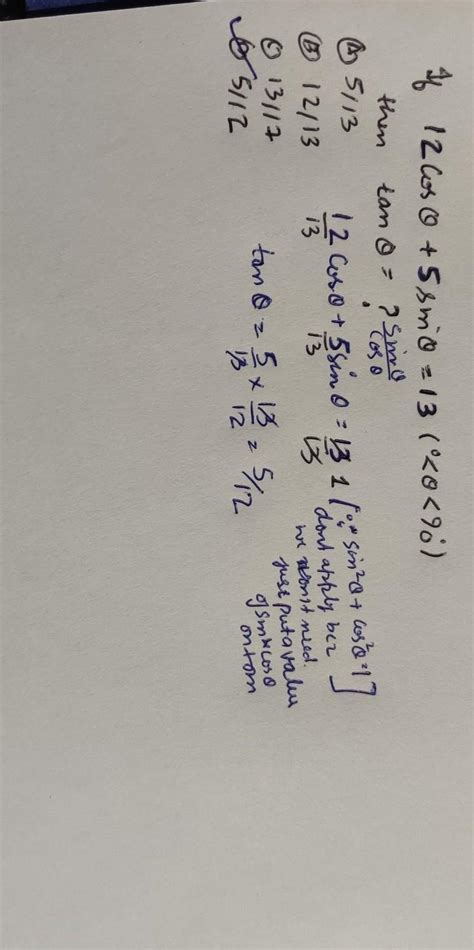 If 12cosθ + 5sinθ = 13 (0°<θ<90°)
then tanθ = ? sinθ/cosθ
Ⓐ 5/13
Ⓑ 12/13
Ⓒ 13/17
Ⓓ 5/12
12/13 cosθ + 5/13 sinθ = 13/13 1 [∵ sin²θ + cos²θ = 1]
dont apply bcz
we don't need
just put a value
of sin & cosθ
tanθ = 5/13 × 13/12 = 5/12